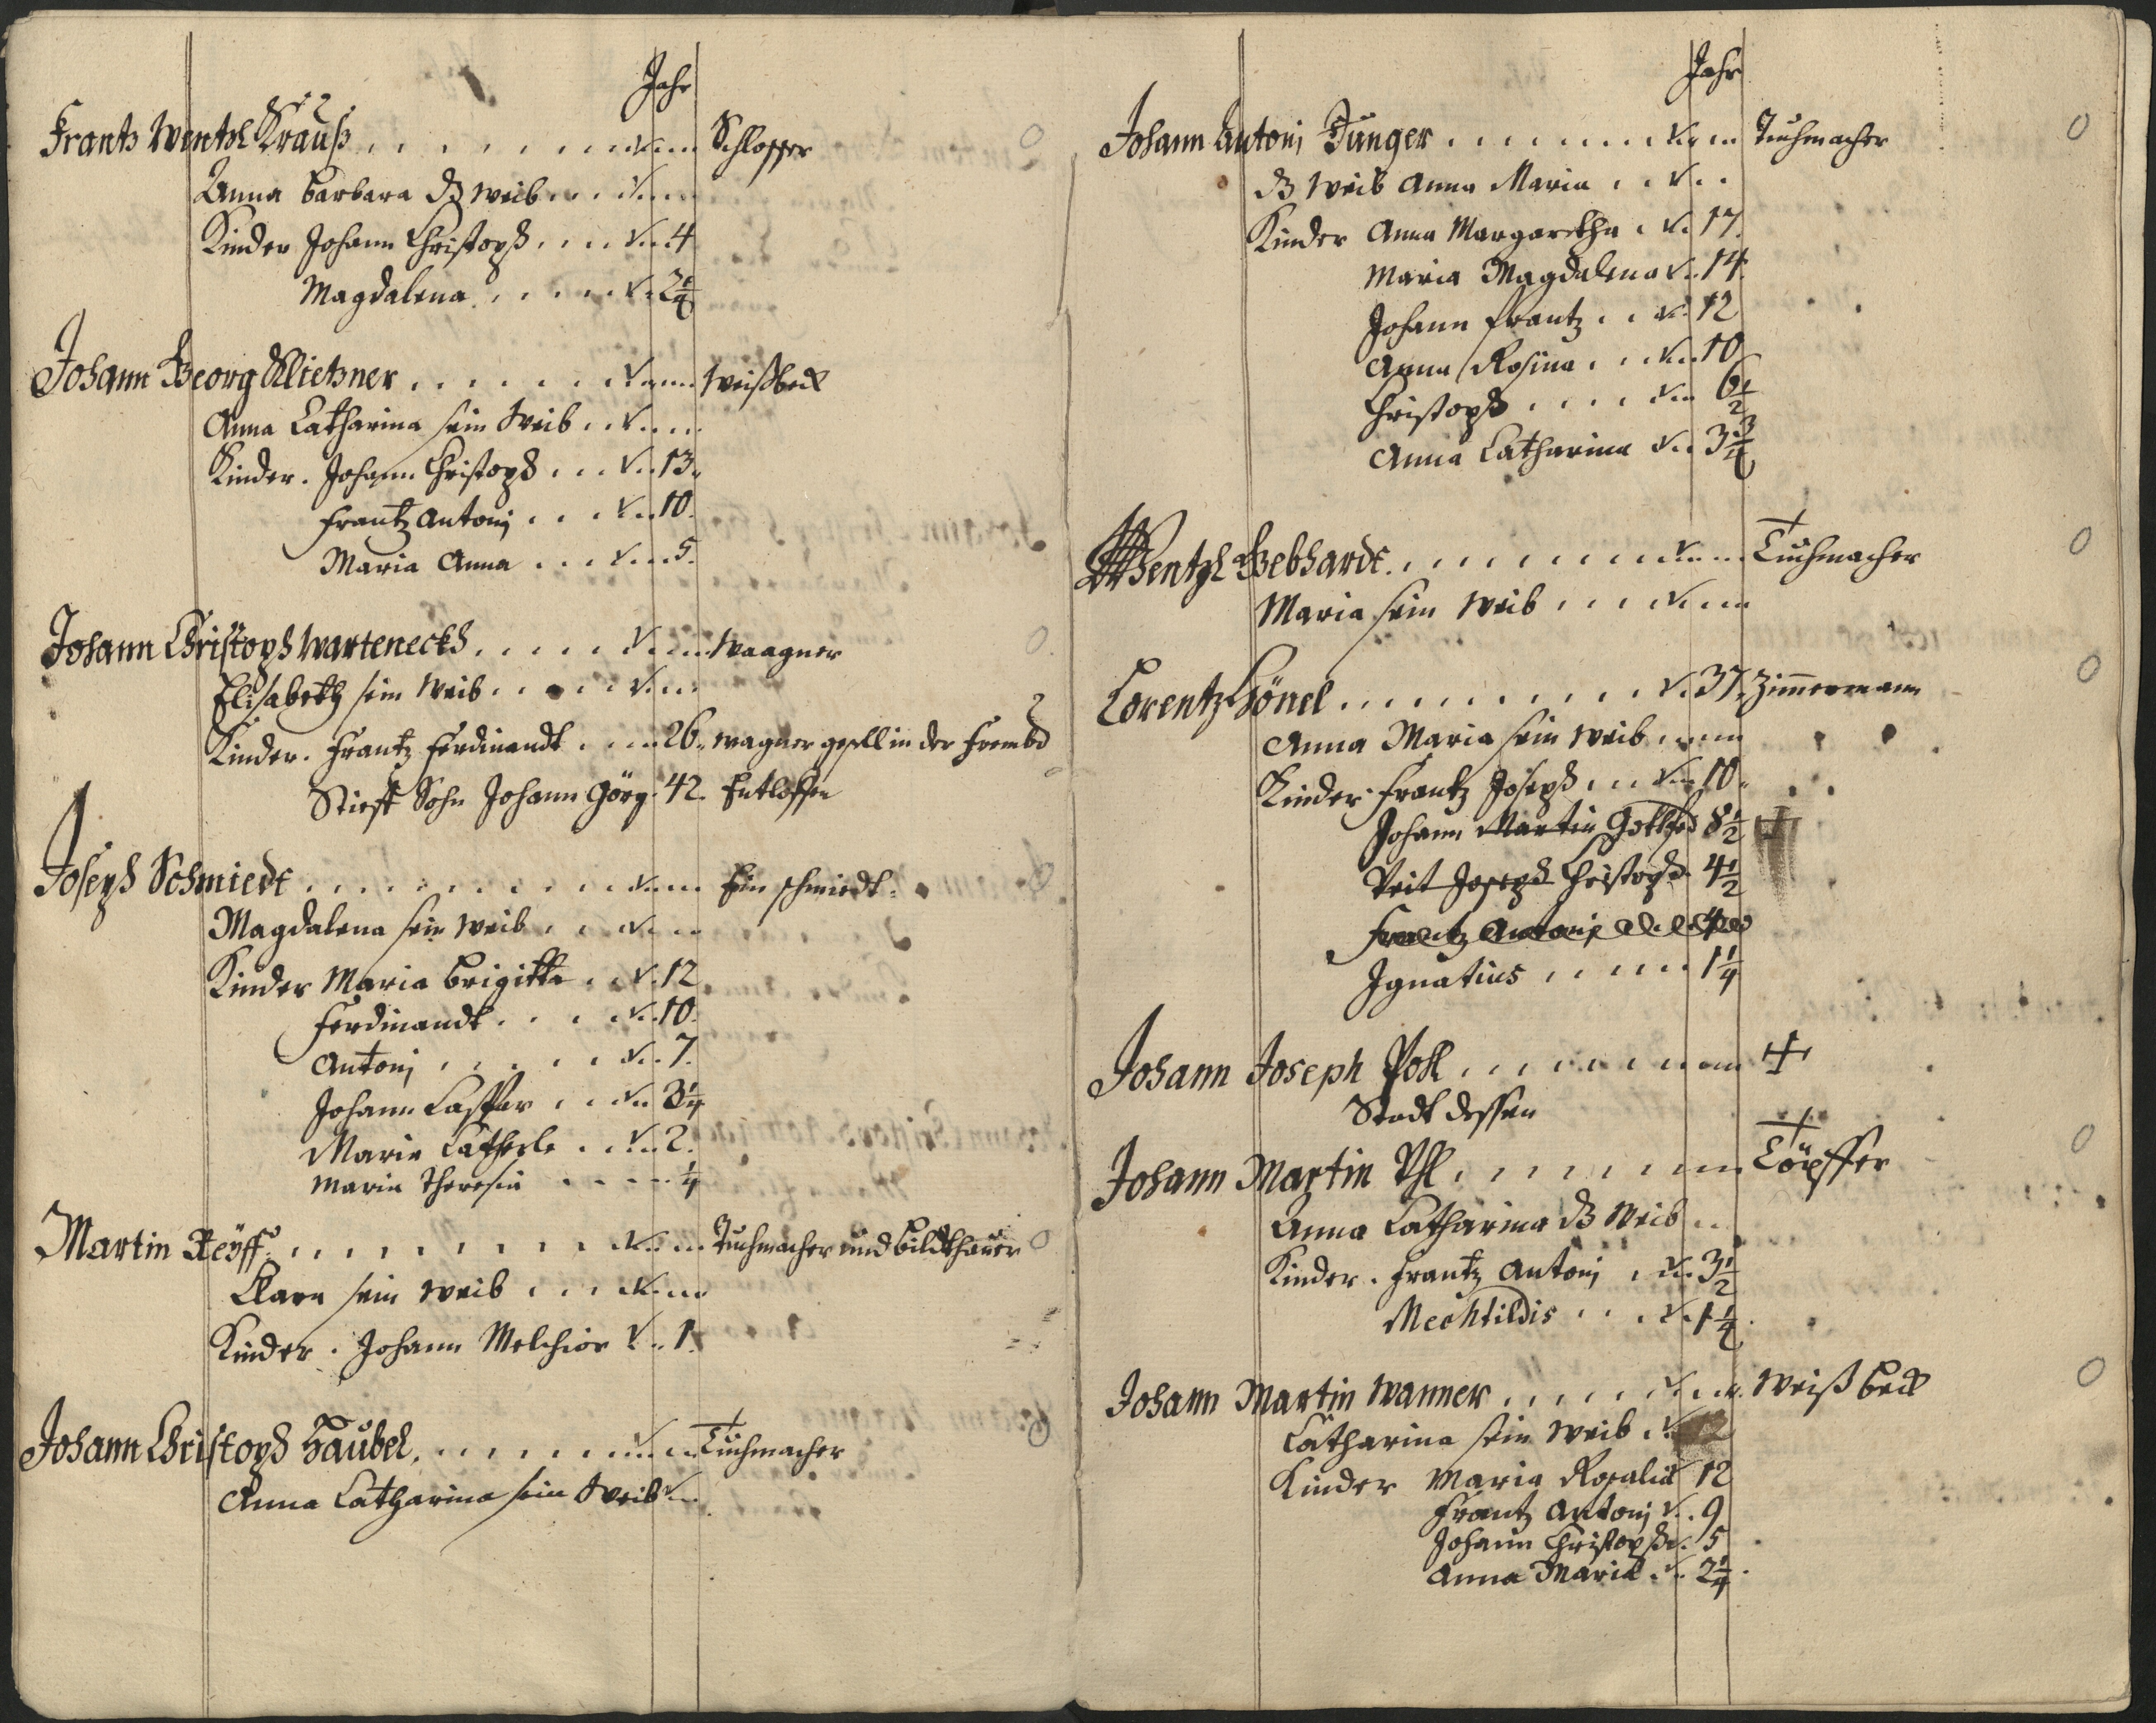 Jahr
Frantz Wentzl Krauß Schlosser
Anna Barbara ds weib
Kinder Johann Christoph 4
Magdalena 2 1/4
Johann Georg Klietzner Weißbeck
Anna Catharina sein Weib
Kinder. Johann Christoph 13.
Frantz Antonj 10.
Maria Anna 5.
Johann Christoph Warteneckh Waagner
Elisabeth sein Weib
Kinder. Frantz Ferdinandt 26. wagner gesell in der Frembd
Stieff Sohn Johann Görg. 42. Entloffen
Joseph Schmiedt Ein schmiedt.
Magdalena sein Weib
Kinder Maria Brigitta 12
Ferdinandt 10.
Antonj 7.
Johann Casspar 3 1/4
Maria Catherle 2.
Maria Theresia 1/4
Martin Reÿff Tuchmacher und bildthauer
Clara sein weib
Kinder. Johann Melchior 1.
Johann Christoph Haubel Tuchmacher
Anna Catharina sein Weib
Jahr
Johann Antonj Junger Tuchmacher
ds Weib Anna Maria
Kinder Anna Margaretha 17.
Maria Magdalena 14.
Johann Frantz 12
Anna Rosina 10
Christoph 6 1/2
Anna Catharina 3 3/4
Wentzl Gebhardt Tuchmacher
Maria sein Weib
Lorentz Hönel 37. Zimmermann
Anna Maria sein weib
Kinder. Frantz Joseph 10.
Johann Martin Gottfrid 8 1/2
Veit Joseph Christoph 4 1/2
Frantz Antonj 4
Ignatius 1 1/4
Johann Joseph Pohl
Stadt dessen
Johann Martin Töpffer
Anna Catharina ds Weib
Kinder. Frantz Antonj 3 1/2
Mechtildis 1 1/4
Johann Martin Wanner Weiß beck
Catharina sein Weib
Kinder Maria Rosalia 12
Frantz Antonj 9
Johann Christoph 5
Anna Maria 2 1/4